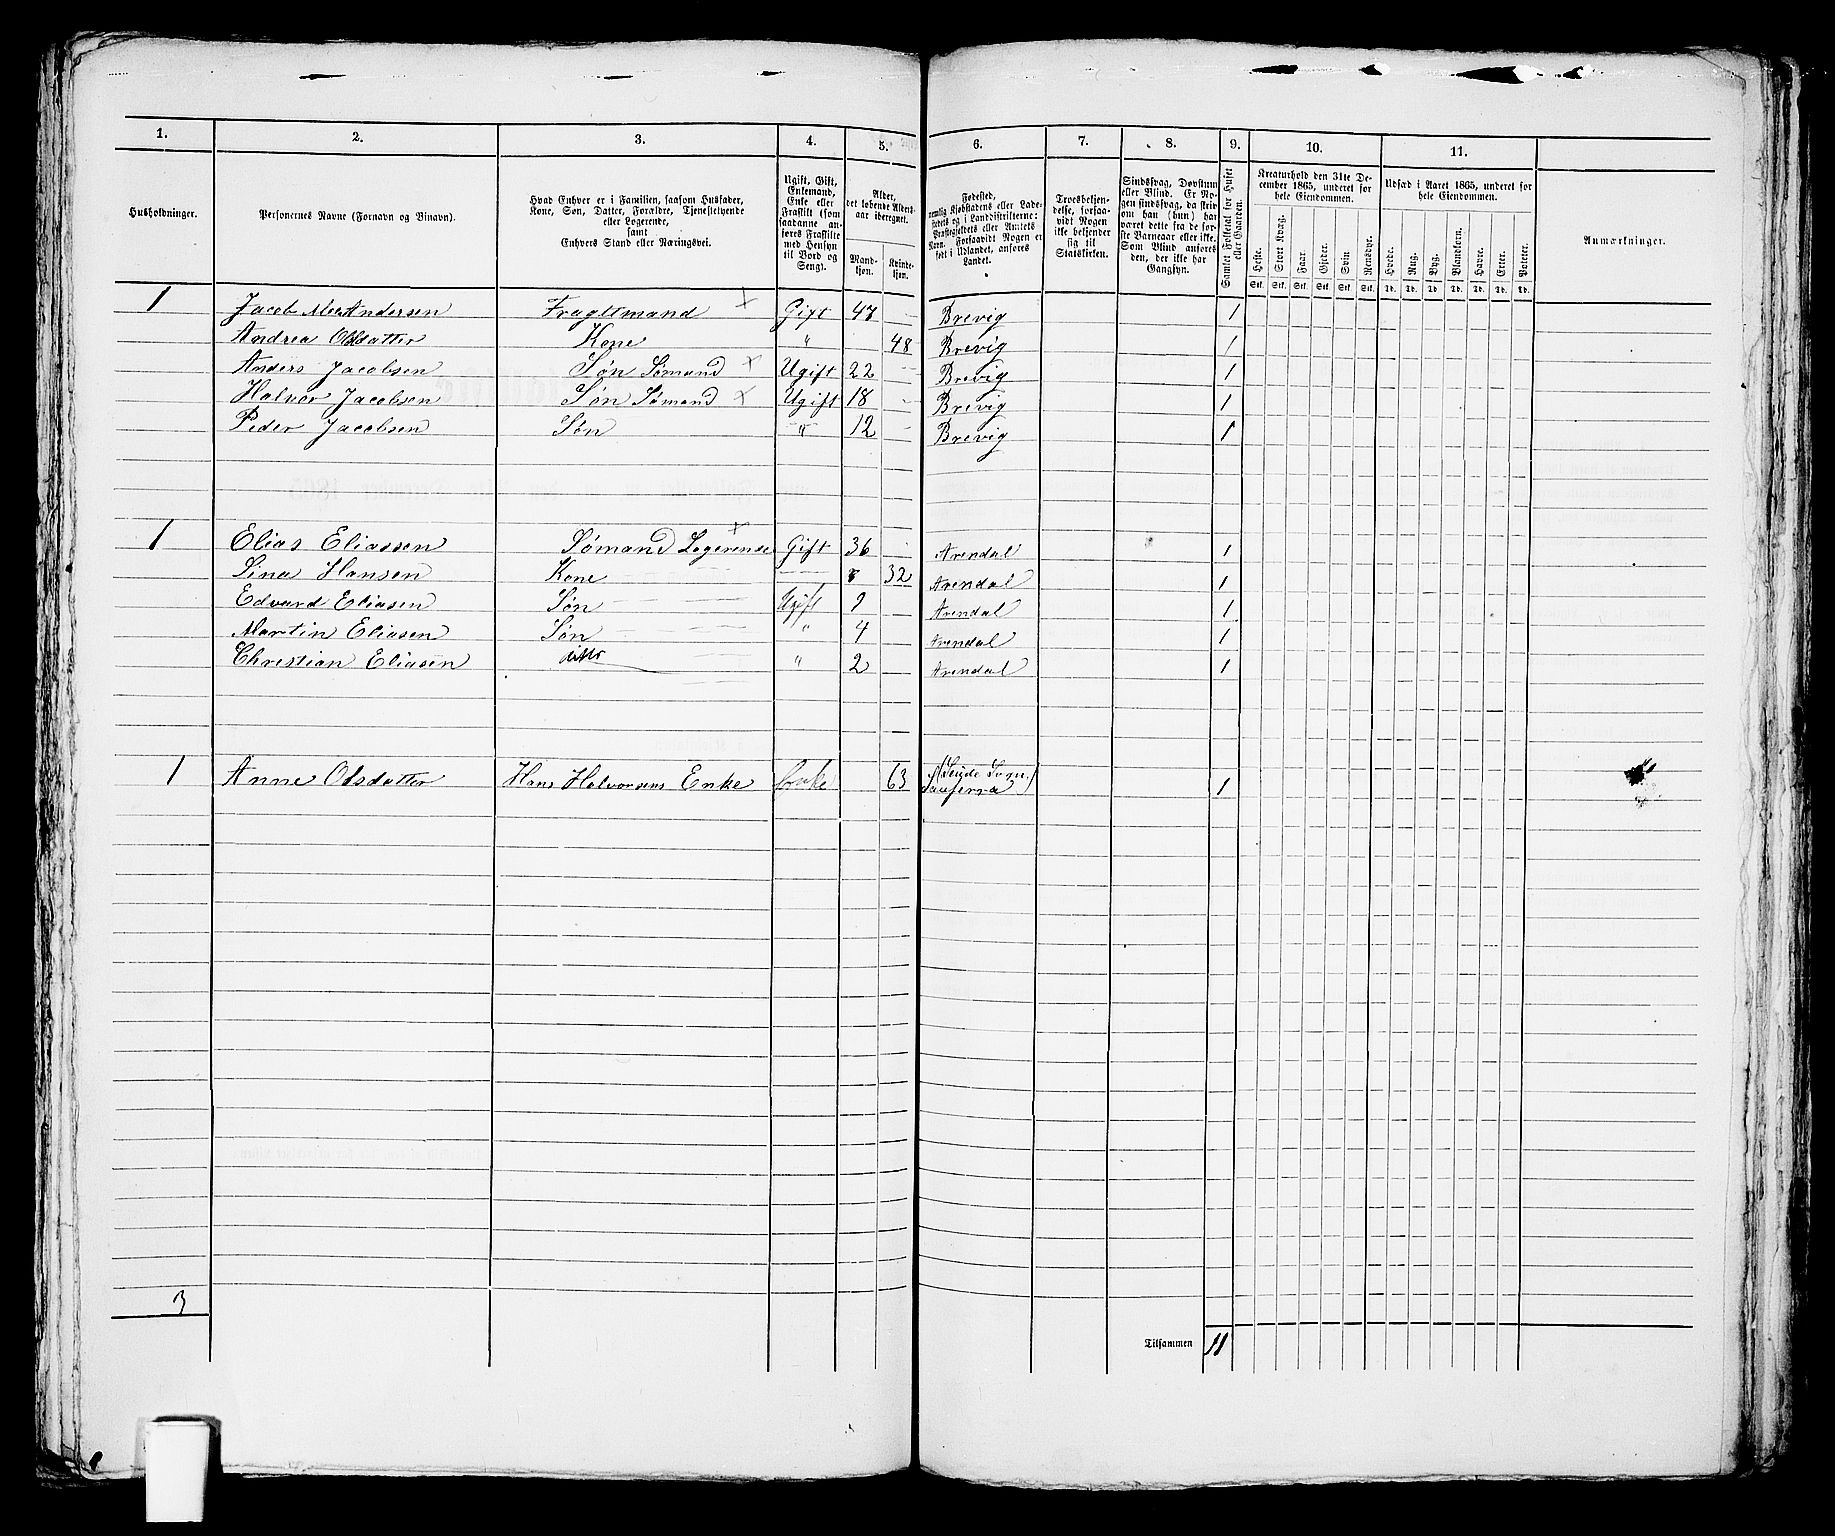 1. 2. 3. 4. 5. 6. 7. 8. 9. 10. 11.
Husholdninger.
Personernes Navne (Fornavn og Binavn).
Hvad Enhver er i Familien, saasom Husfader,
Kone, Søn, Datter, Forældre, Tjenestetyende
eller Logerende,
samt
Enhvers Stand eller Næringsvei.
Ugift, Gift,
Enkemand,
Enke eller
Fraskilt (som
saadanne anføres
Fraskilte
med Hensyn
til Bord og
Seng).
Alder,
det løbende Aldersaar
iberegnet.
Mandkjøn.
Kvindekjøn.
Fødested,
nemlig Kjøbstadens eller Ladestedets
og i Landdistrikterne:
Præstegjeldets eller Amtets
Navn. Forsaavidt Nogen er
født i Udlandet, anføres
Landet.
Troesbekjendelse,
forsaavidt
Nogen
ikke bekjender
sig til
Statskirken.
Sindssvag, Døvstum
eller Blind. Er Nogen
sindssvag, da skrives
om han (hun) har
været dette fra de første
Barneaar eller ikke.
Som Blind anføres
den, der ikke har
Gangsyn.
Samlet Folketal for Huset
eller Gaarden.
Kreaturhold den 31te December
1865, underet for
hele Eiendommen.
Udsæd i Aaret 1865, underet for
hele Eiendommen.
Heste. Stort Kvæg. Faar. Gjeder. Svin Rensdyr. Hvede. Rug. Byg. Blandkorn. Havre. Erter. Poteter.
Stk. Stk. Stk. Stk. Stk. Stk. Td. Td. Td. Td. Td. Td. Td.
Anmærkninger.
1 Jacob Andersen Fragtmand × Gift 47 Brevig 1
Andrea Olsdatter Kone " 48 Brevig 1
Anders Jacobsen Søn Sømand × Ugift 22 Brevig 1
Halvor Jacobsen Søn Sømand × Ugift 18 Brevig 1
Peder Jacobsen Søn " 12 Brevig 1
1 Elias Eliassen Sømand Logerende × Gift 36 Arendal 1
Lina Hansen Kone 32 Arendal 1
Edvard Eliasen Søn Ugift 9 Arendal 1
Martin Eliasen Søn " 4 Arendal 1
Christian Eliasen ditto " 2 Arendal 1
1 Anne Olsdatter Hans Halvorsens Enke Enke 63 1
3
Tilsammen 11